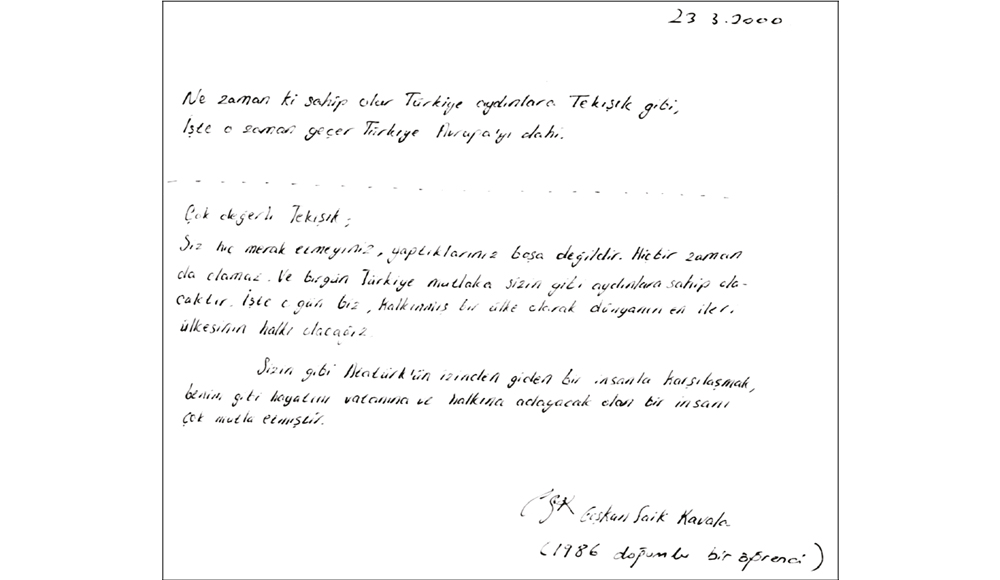 23 3.2000
Ne zaman ki sahip olur Türkiye aydınlara Tekışık gibi,
İşte o zaman geçer Türkiye Avrupa'yı dahi.
Çok değerli Tekışık,
Siz hiç merak etmeyiniz, yaptıklarınız boşa değildir. Hiçbir zaman
da olamaz. Ve birgün Türkiye mutlaka sizin gibi aydınlara sahip ola-
caktır. İşte o gün biz, kalkınmış bir ülke olarak dünyanın en ileri
ülkesinin halkı olacağız.
Sizin gibi Atatürk'ün izinden giden bir insanla karşılaşmak,
benim gibi hayatını vatanına ve halkına adayacak olan bir insanı
çok mutlu etmiştir.
Coşkun Saik Kavala
(1986 doğumlu bir öğrenci)